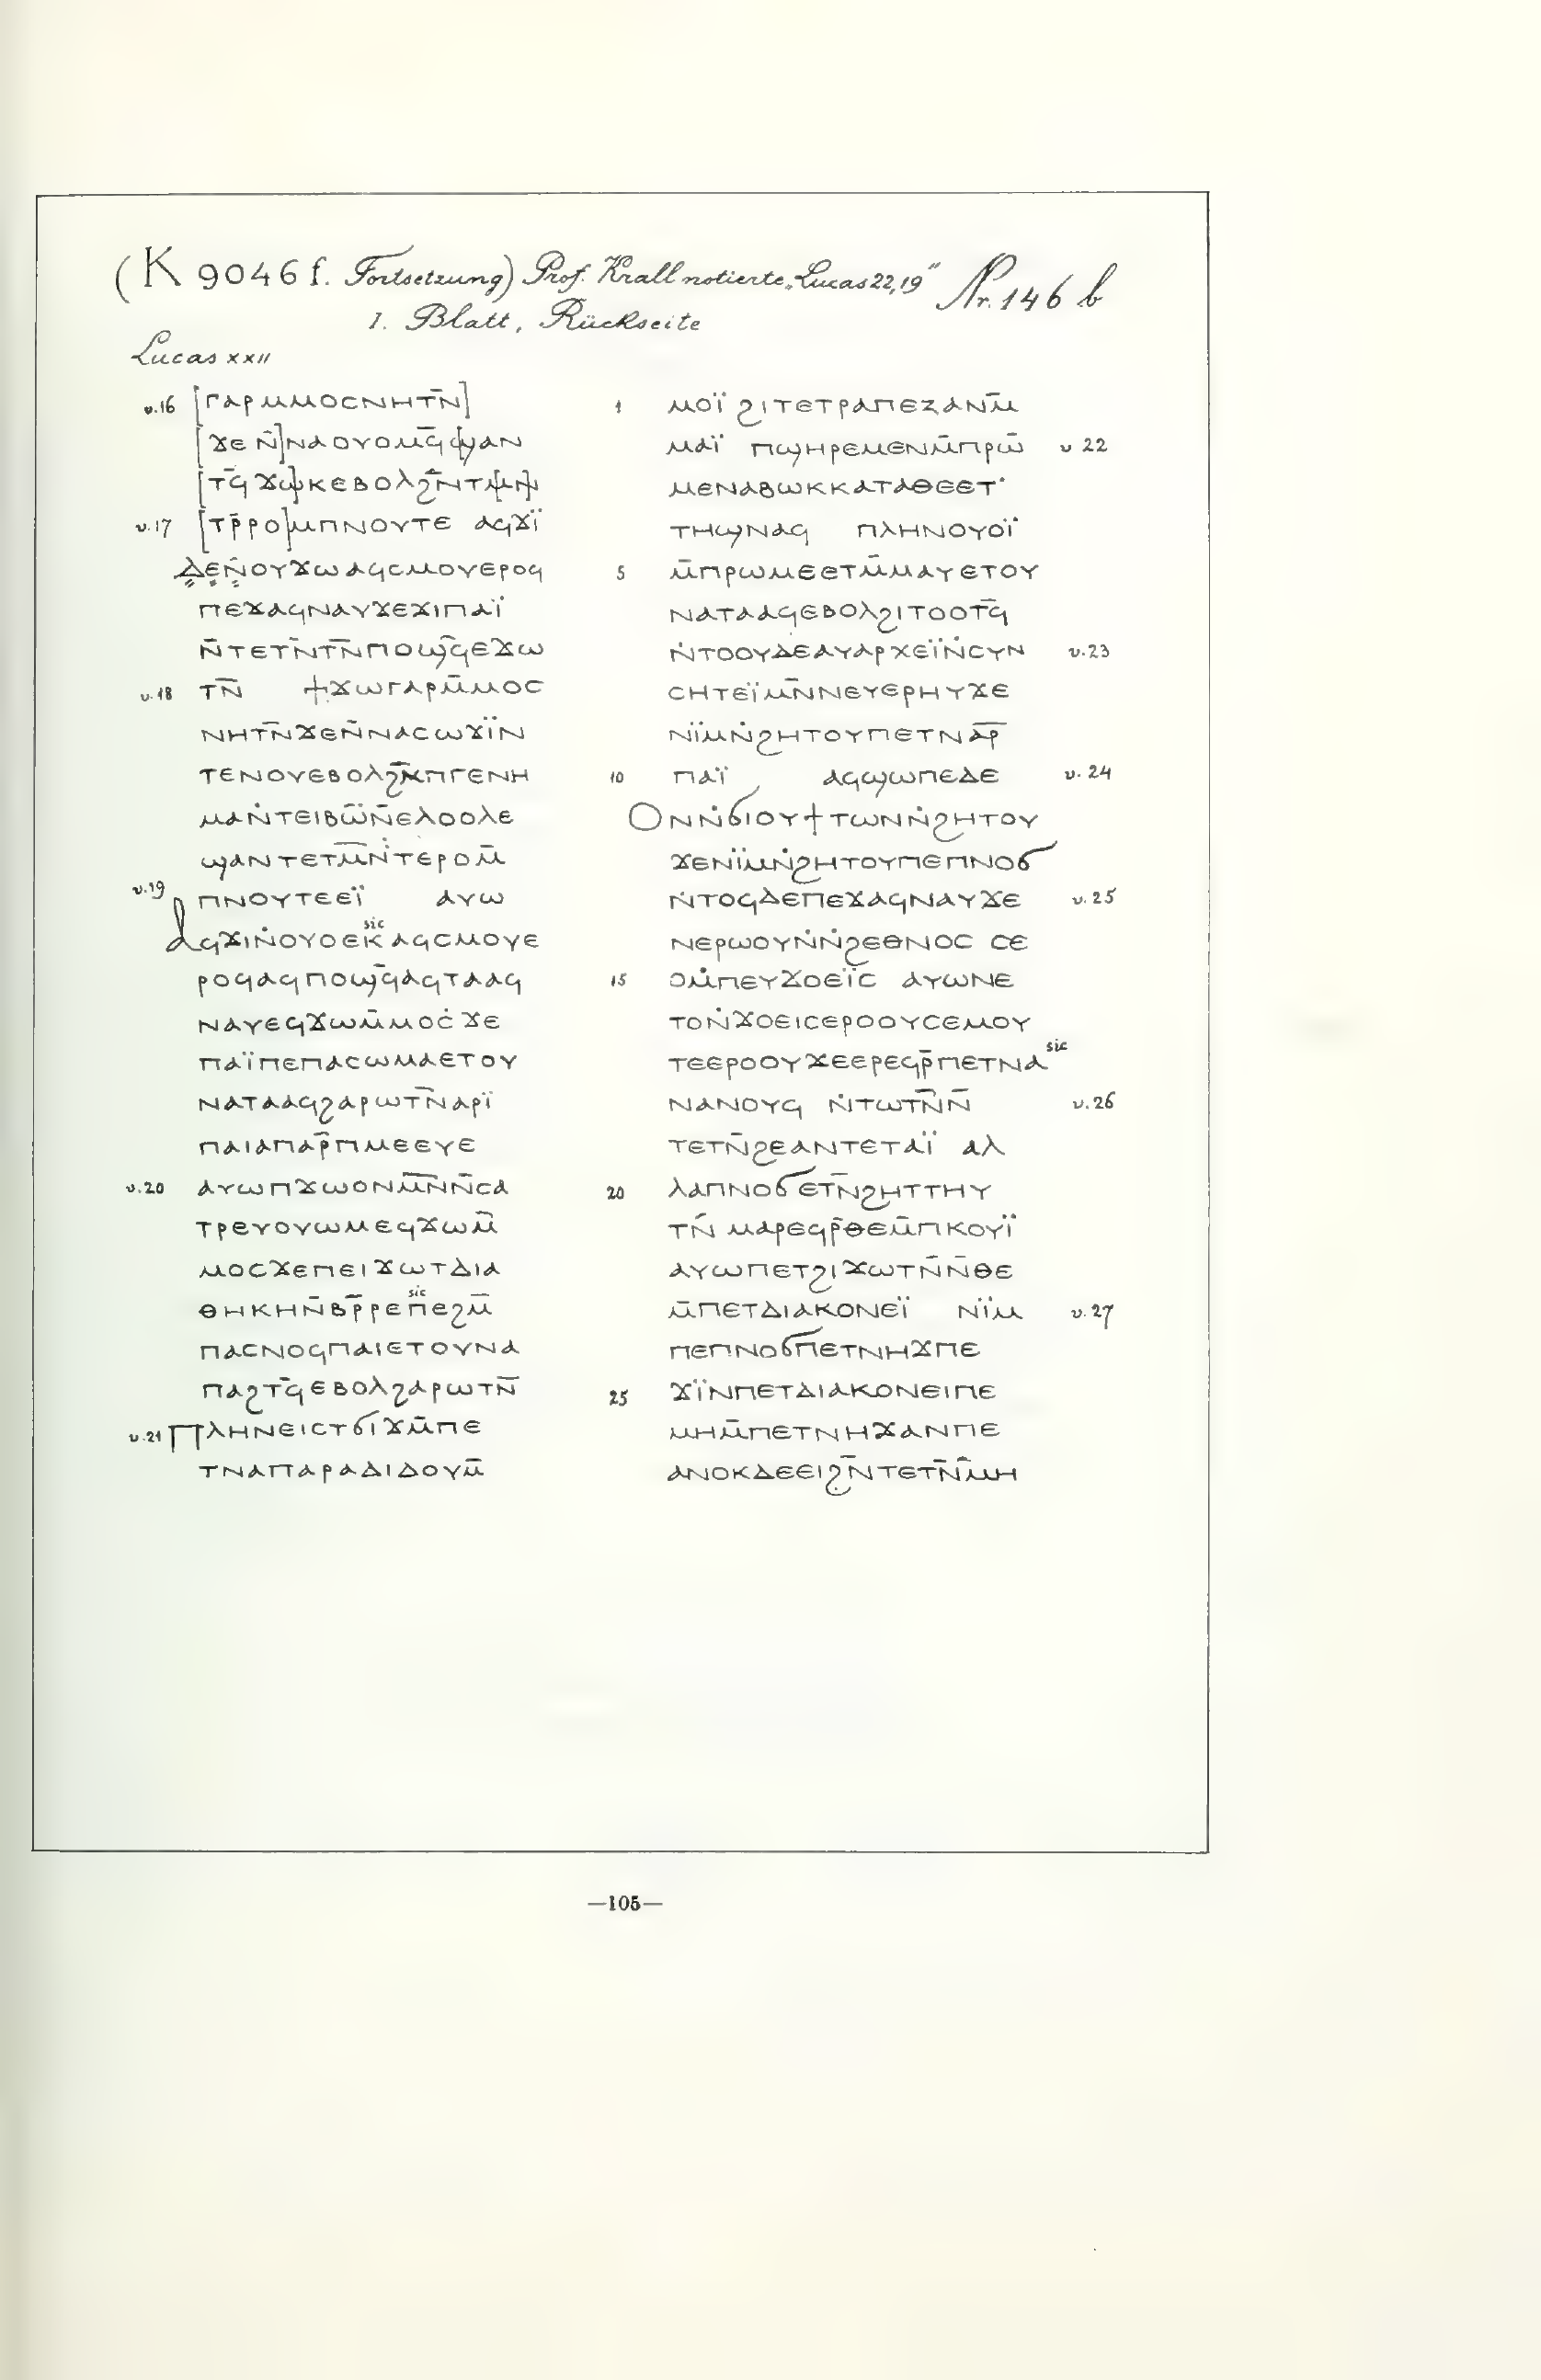 (K 9046 f. Fortsetzung) Prof. Krall notierte „Lucas 22,19" Nr. 146 b
1. Blatt, Rückseite
Lucas XXII
v.16 [ⲅⲁⲣⲙⲙⲟⲥⲛⲏⲧⲛ̄]
[ϫⲉ ⲛ̄]ⲛⲁⲟⲩⲟⲙϥ̄ϣⲁⲛ
[ⲧϥ̄ϫⲱ]ⲕⲉⲃⲟⲗϩⲛ̄ⲧⲙⲛ̄
v.17 [ⲧⲣ̄ⲣⲟ]ⲙⲡⲛⲟⲩⲧⲉ ⲁϥϫⲓ̈
ⲇⲉⲛ̄ⲟⲩϫⲱⲁϥⲥⲙⲟⲩⲉⲣⲟϥ
ⲡⲉϫⲁϥⲛⲁⲩϫⲉϫⲓⲡⲁⲓ̈
ⲛ̄ⲧⲉⲧⲛ̄ⲧⲛ̄ⲡⲟϣϥ̄ⲉϫⲱ
v.18 ⲧⲛ̄ ϯϫⲱⲅⲁⲣⲙ̄ⲙⲟⲥ
ⲛⲏⲧⲛ̄ϫⲉⲛ̄ⲛⲁⲥⲱϫⲓ̈ⲛ
ⲧⲉⲛⲟⲩⲉⲃⲟⲗϩⲙ̄ⲡⲅⲉⲛⲏ
ⲙⲁⲛ̇ⲧⲉⲓⲃⲱ̈ⲛ̄ⲉⲗⲟⲟⲗⲉ
ϣⲁⲛⲧⲉⲧⲙⲛ̄ⲧⲉⲣⲟⲙ̄
v.19 ⲡⲛⲟⲩⲧⲉⲉⲓ̈ ⲁⲩⲱ
ⲁϥϫⲓⲛ̇ⲟⲩⲟⲉⲓⲕ sic ⲁϥⲥⲙⲟⲩⲉ
ⲣⲟϥⲁϥⲡⲟϣϥ̄ⲁϥⲧⲁⲁϥ
ⲛⲁⲩⲉϥϫⲱⲙ̄ⲙⲟⲥ̇ϫⲉ
ⲡⲁⲓ̈ⲡⲉⲡⲁⲥⲱⲙⲁⲉⲧⲟⲩ
ⲛⲁⲧⲁⲁϥϩⲁⲣⲱⲧⲛ̄ⲁⲣⲓ̈
ⲡⲁⲓⲁⲡⲁⲣ̄ⲡⲙⲉⲉⲩⲉ
v.20 ⲁⲩⲱⲡϫⲱⲟⲛⲙⲛ̄ⲛ̄ⲥⲁ
ⲧⲣⲉⲩⲟⲩⲱⲙⲉϥϫⲱⲙ̄
ⲙⲟⲥϫⲉⲡⲉⲓϫⲱⲧⲇⲓⲁ
ⲑⲏⲕⲏⲛ̄ⲃⲣ̄ⲣⲉⲡ sic ⲉϩⲙ̄
ⲡⲁⲥⲛⲟϥⲡⲁⲓⲉⲧⲟⲩⲛⲁ
ⲡⲁϩⲧϥ̄ⲉⲃⲟⲗϩⲁⲣⲱⲧⲛ̄
v.21 ⲡⲗⲏⲛⲉⲓⲥⲧϭⲓϫⲙ̄ⲡⲉ
ⲧⲛⲁⲡⲁⲣⲁⲇⲓⲇⲟⲩⲙ̄
1 ⲙⲟⲓ̈ ϩⲓⲧⲉⲧⲣⲁⲡⲉⲍⲁⲛⲙ̄
ⲙⲁⲓ̈ ⲡϣⲏⲣⲉⲙⲉⲛⲙ̄ⲡⲣⲱ̄ v 22
ⲙⲉⲛⲁⲃⲱⲕⲕⲁⲧⲁⲑⲉⲉⲧ·
ⲧⲏϣⲛⲁϥ ⲡⲗⲏⲛⲟⲩⲟⲓ̈
5 ⲙ̄ⲡⲣⲱⲙⲉⲉⲧⲙ̄ⲙⲁⲩⲉⲧⲟⲩ
ⲛⲁⲧⲁⲁϥⲉⲃⲟⲗϩⲓⲧⲟⲟⲧϥ̄
ⲛ̇ⲧⲟⲟⲩⲇⲉⲁⲩⲁⲣⲭⲉⲓ̈ⲛ̇ⲥⲩⲛ v.23
ⲥⲏⲧⲉⲓ̈ⲙⲛ̄ⲛⲉⲩⲉⲣⲏⲩϫⲉ
ⲛⲓ̈ⲙⲛ̇ϩⲏⲧⲟⲩⲡⲉⲧⲛⲁⲣ̄
10 ⲡⲁⲓ̈ ⲁϥϣⲱⲡⲉⲇⲉ v. 24
ⲟⲛⲛ̇ϭⲓⲟⲩϯⲧⲱⲛⲛ̇ϩⲏⲧⲟⲩ
ϫⲉⲛⲓ̈ⲙⲛ̇ϩⲏⲧⲟⲩⲡⲉⲡⲛⲟϭ
ⲛ̇ⲧⲟϥⲇⲉⲡⲉϫⲁϥⲛⲁⲩϫⲉ v.25
ⲛⲉⲣⲱⲟⲩⲛ̇ⲛ̇ϩⲉⲑⲛⲟⲥ ⲥⲉ
15 ⲟⲙ̇ⲡⲉⲩϫⲟⲉⲓ̈ⲥ ⲁⲩⲱⲛⲉ
ⲧⲟⲛ̇ϫⲟⲉⲓⲥⲉⲣⲟⲟⲩⲥⲉⲙⲟⲩ
ⲧⲉⲉⲣⲟⲟⲩϫⲉⲉⲣⲉϥⲣ̄ⲡⲉⲧⲛⲁ sic
ⲛⲁⲛⲟⲩϥ ⲛ̇ⲧⲱⲧⲛ̄ⲛ̄ v.26
ⲧⲉⲧⲛ̄ϩⲉⲁⲛⲧⲉⲧⲁⲓ̈ ⲁⲗ
20 ⲗⲁⲡⲛⲟϭⲉⲧⲛ̄ϩⲏⲧⲧⲏⲩ
ⲧⲛ̄ ⲙⲁⲣⲉϥⲣ̄ⲑⲉⲙ̄ⲡⲕⲟⲩⲓ̈
ⲁⲩⲱⲡⲉⲧϩⲓϫⲱⲧⲛ̄ⲛ̄ⲑⲉ
ⲙ̄ⲡⲉⲧⲇⲓⲁⲕⲟⲛⲉⲓ̈ ⲛⲓ̈ⲙ v.27
ⲡⲉⲡⲛⲟϭⲡⲉⲧⲛⲏϫⲡⲉ
25 ϫⲓ̈ⲛⲡⲉⲧⲇⲓⲁⲕⲟⲛⲉⲓⲡⲉ
ⲙⲏⲙ̄ⲡⲉⲧⲛⲏϫⲁⲛⲡⲉ
ⲁⲛⲟⲕⲇⲉⲉⲓϩⲛ̄ⲧⲉⲧⲛ̄ⲙⲏ
—105—